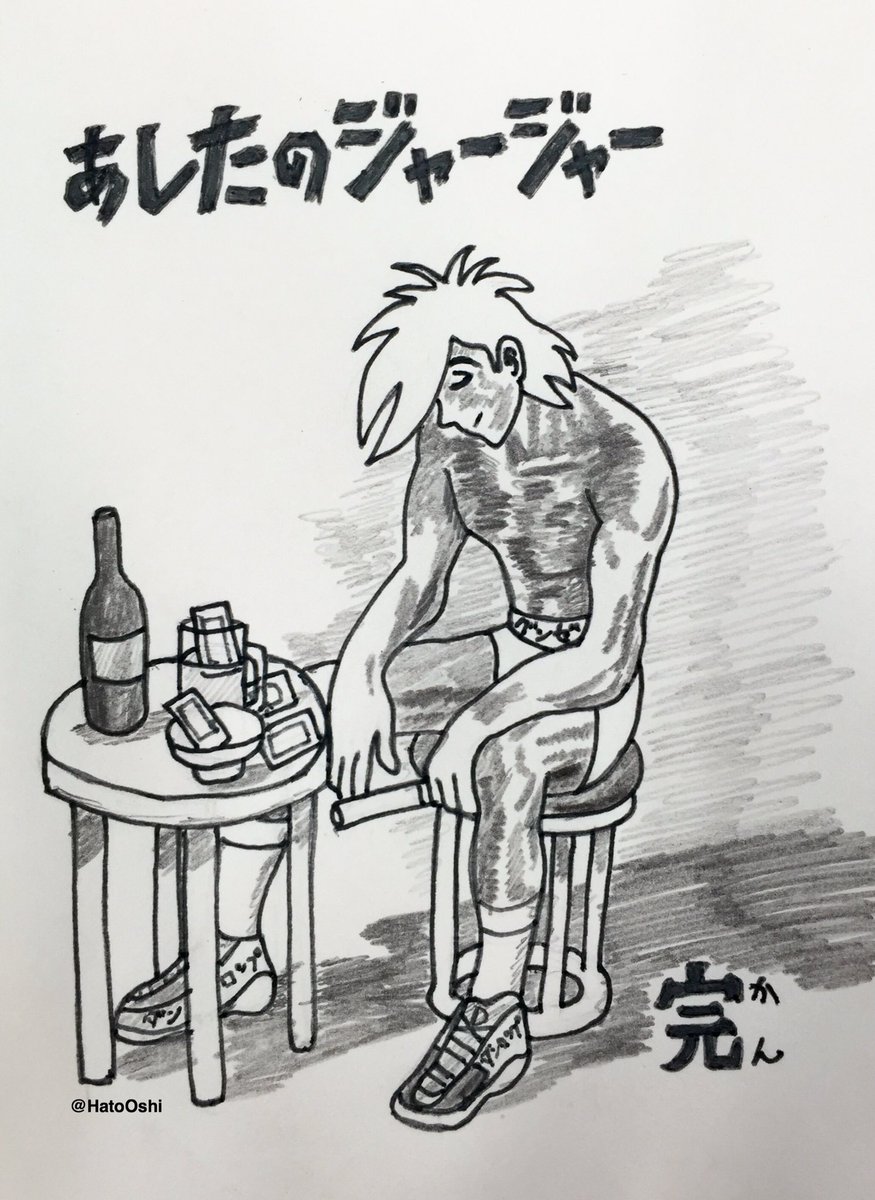 あしたのジャージャー
グンゼ
ダン
ロップ
ダンロップ
完
かん
@HatoOshi